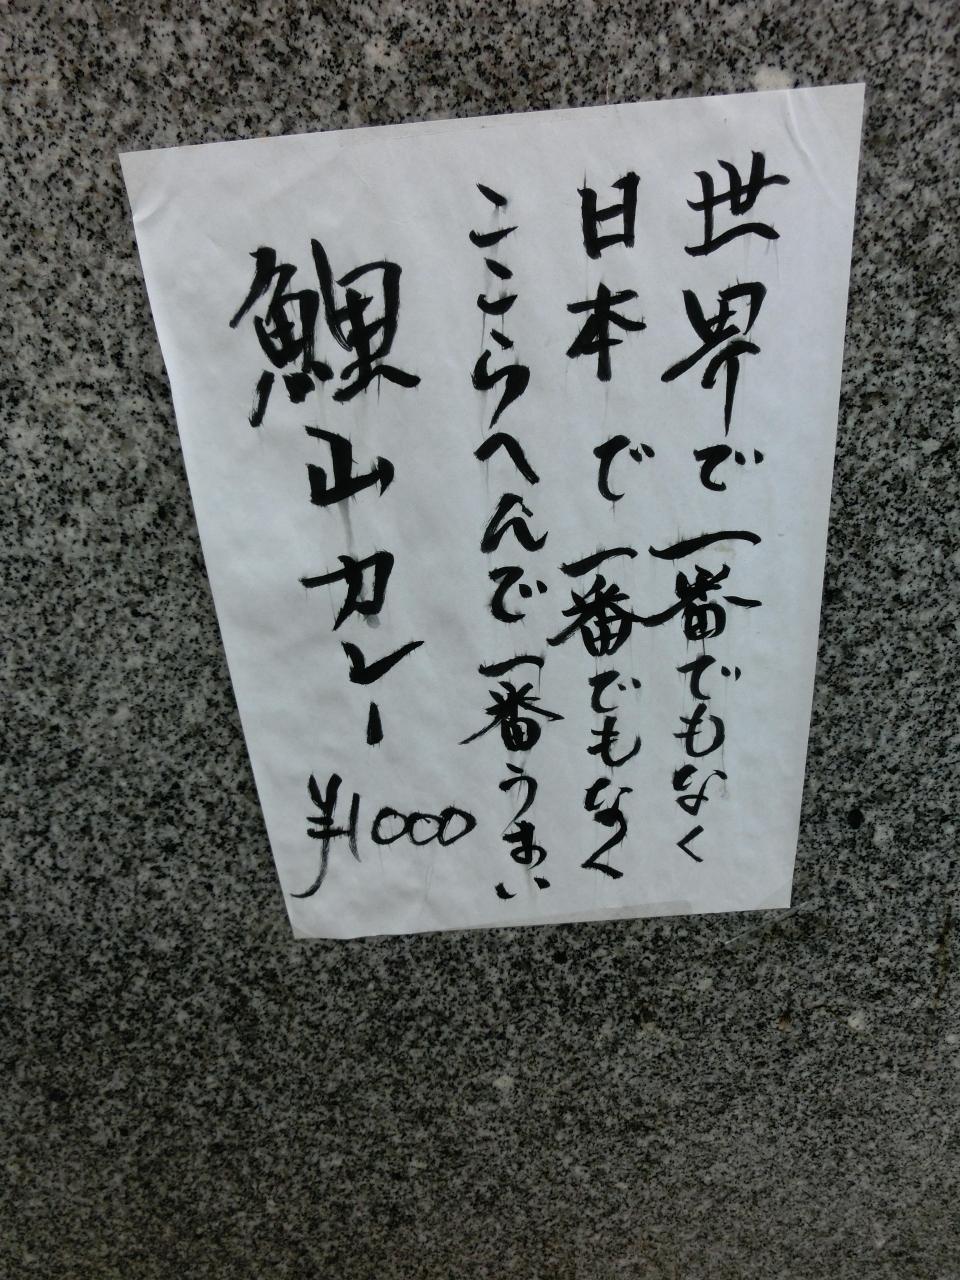 世界で一番でもなく
日本で一番でもなく
ここらへんで一番うまい
鯉山カレー
¥1000